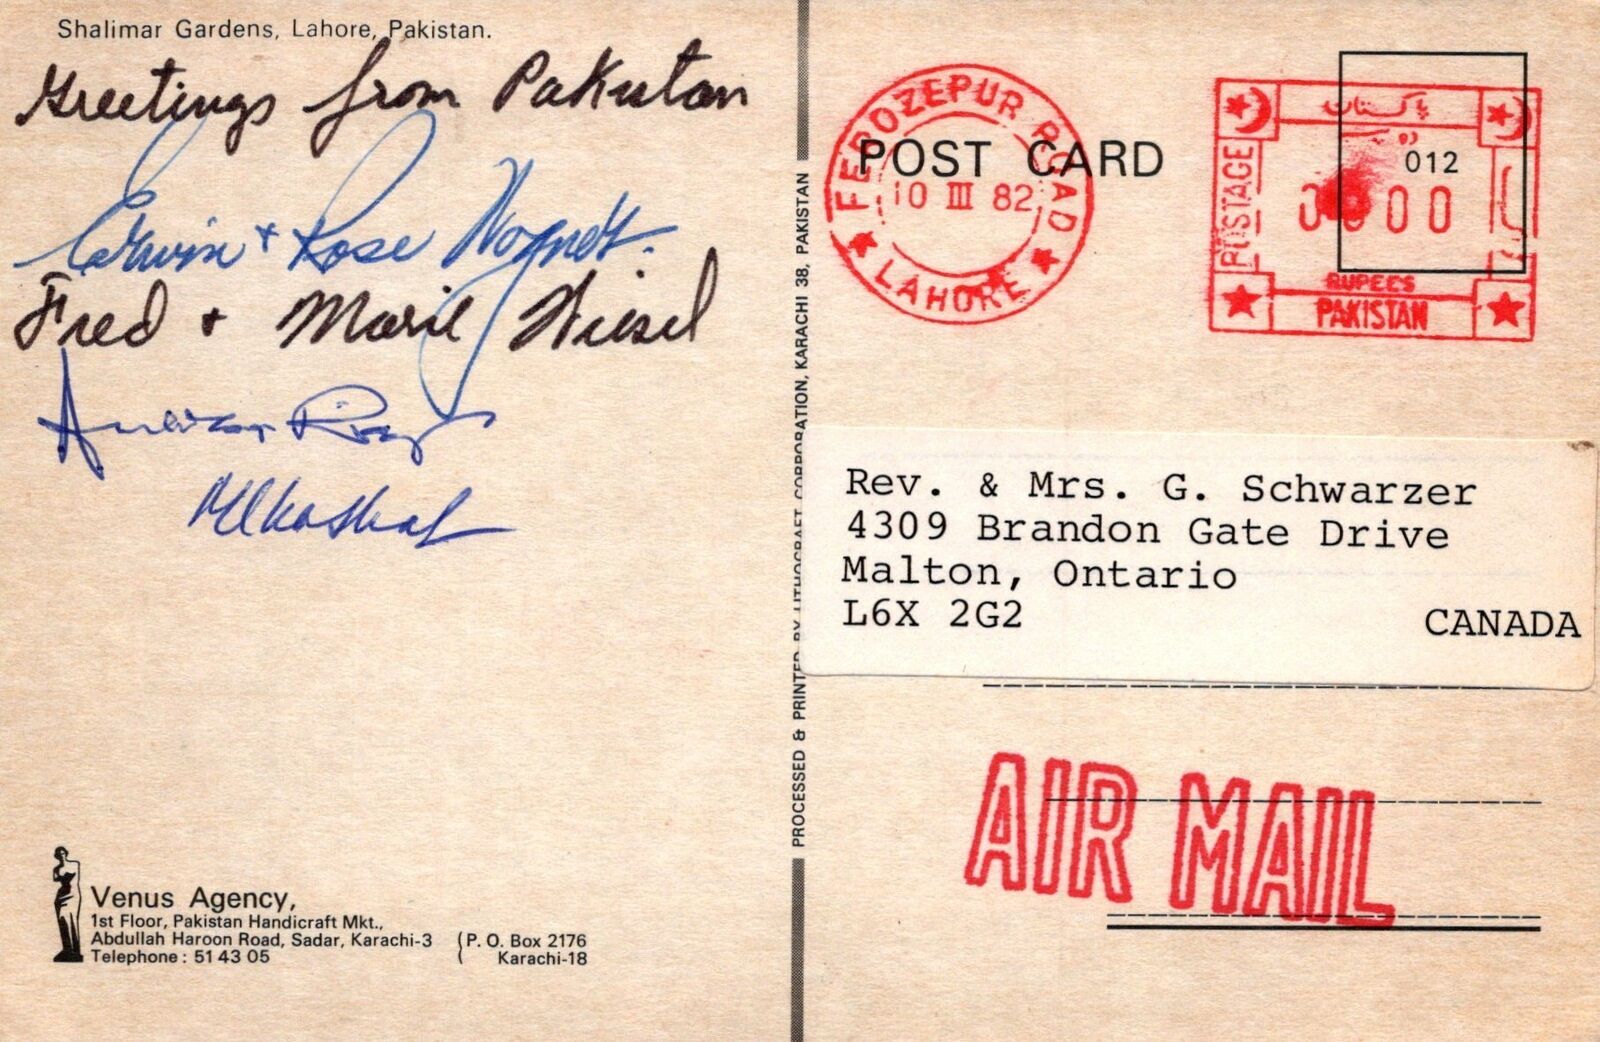 Shalimar Gardens, Lahore, Pakistan.
Greetings from Pakistan
Erwin + Rose
Fred + Marie Wiesel
POST CARD
FEROZEPUR ROAD
10 III 82
LAHORE
پاکستان
012
POSTAGE
RUPEES
PAKISTAN
PROCESSED & PRINTED BY LITHOCRAFT CORPORATION, KARACHI 38, PAKISTAN
Rev. & Mrs. G. Schwarzer
4309 Brandon Gate Drive
Malton, Ontario
L6X 2G2 CANADA
AIR MAIL
Venus Agency,
1st Floor, Pakistan Handicraft Mkt.,
Abdullah Haroon Road, Sadar, Karachi-3
Telephone: 51 43 05
P. O. Box 2176
Karachi-18